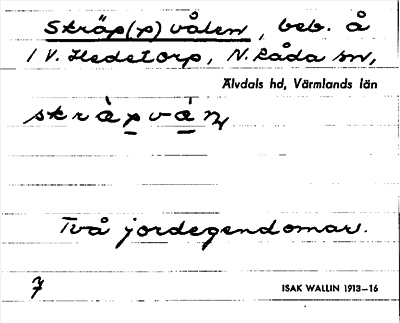 Skräp(p)vålen, beb. å
1 V. Hedetorp, N. Råda sn,
Älvdals hd, Värmlands län
skràpvàn,
Två jordegendomar.
7
ISAK WALLIN 1913–16